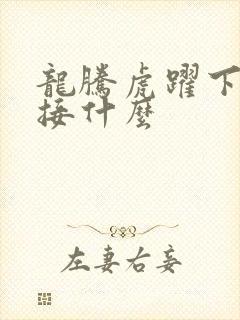 龍騰虎躍下
接什麼
左妻右妾